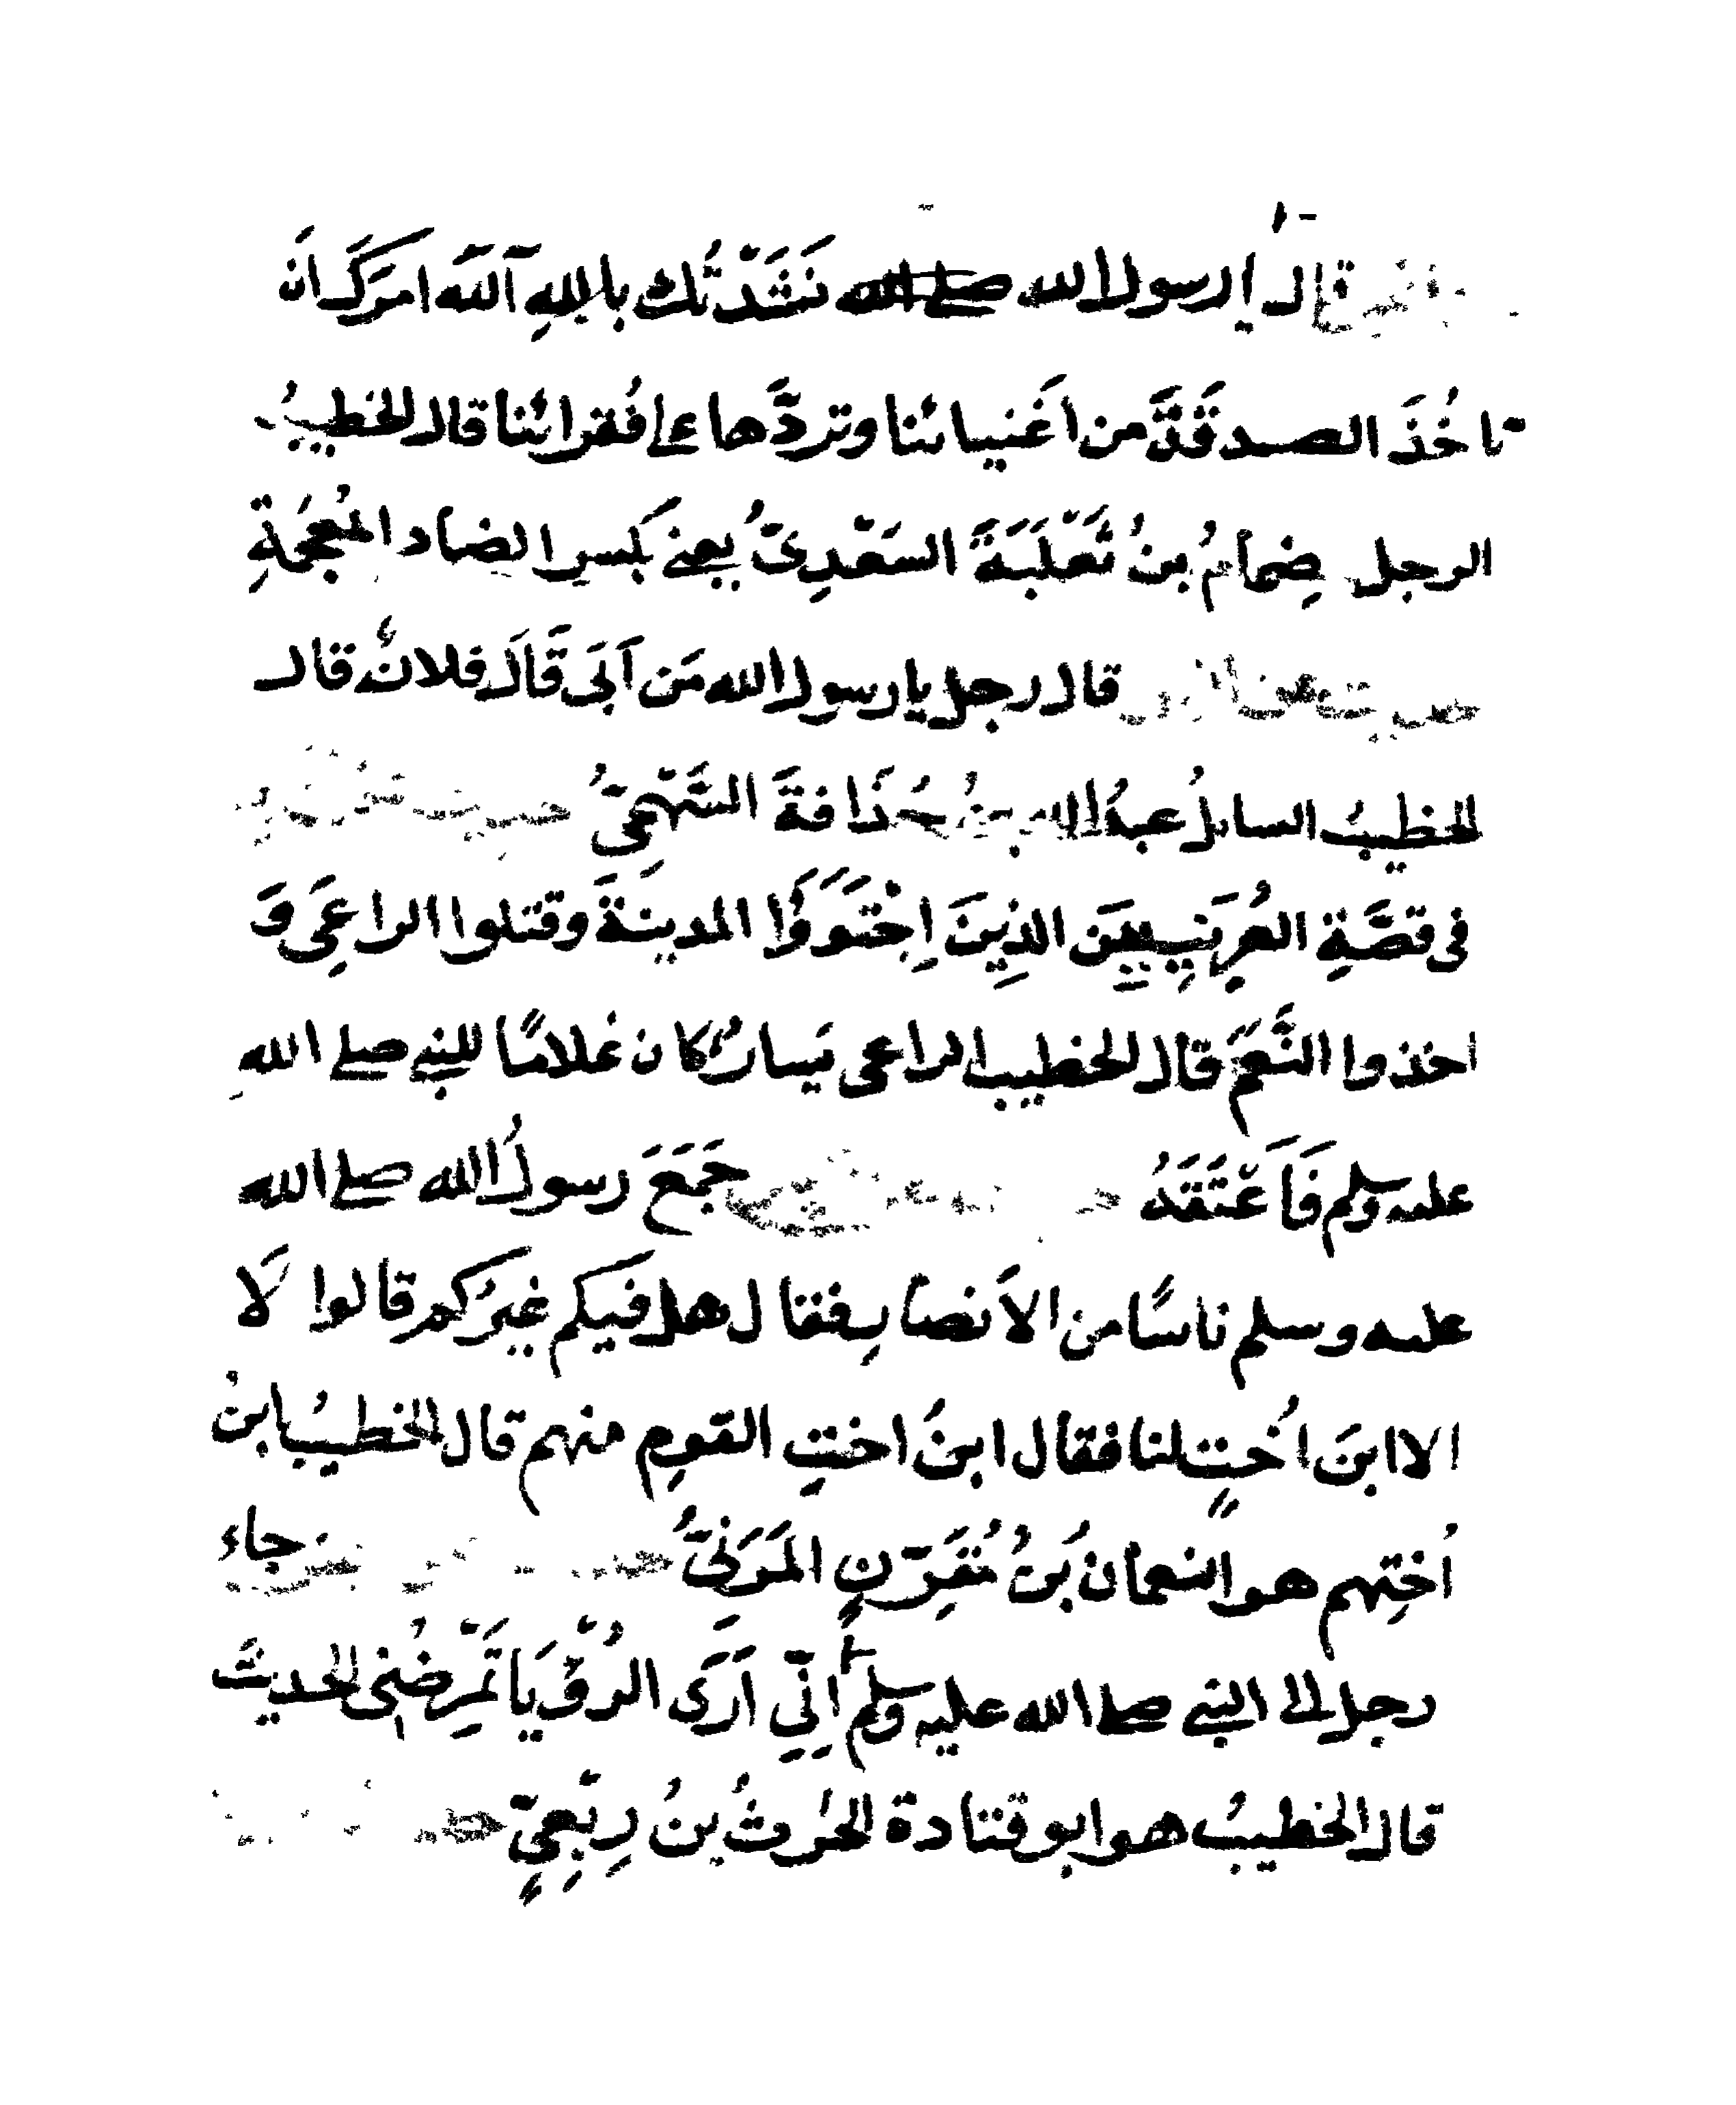 قال يا رسول الله صلى الله نَشَدْتُك باللهِ آلله امَرَكَ انْ
تاخُذَ الصدقَةَ من اَغنيائنا وتردَّها على فُقرائنا قال الخطيبُ
الرجل ضِمامُ بنُ ثَعْلَبَةَ السَعْدِىُّ يعنى بكسر الضاد المُعجمَةِ
حديث قال رجل يا رسول الله مَن اَبَى قَالَ فلانٌ قال
الخطيبُ السائلُ عبدُ الله بنُ حُذَافةَ السَّهْمِىُّ حديث
فى قصَّةِ العُرَنِيينَ الذِينَ اِجْتَوَوُا المدينةَ وقتلوا الراعِىَ وَ
اخذوا النَّعَمَ قال الخطيب الراعى يَسارٌ كان غلامًا للنبى صلى اللهِ
عليه وسلم فَاَعْتَقَهُ جَمَعَ رسولُ الله صلى الله
عليه وسلم ناسًا من الاَنصارِ فقال هل فيكم غيرُكم قالوا لَا
الا ابنَ اُختٍ لنا فقال ابنُ اختِ القومِ منهم قال الخطيبُ ابنُ
اُختِهم هو النعمان بنُ مُقَرِّنٍ المُزَنِىُّ جاء
رجل الى النبى صلى الله عليه وسلم اِنِّي اَرَى الرُؤْيَا تُمْرِضُنِى الحديثَ
قال الخطيبُ هو ابو قتادة الحٰرثُ بنُ رِبْعِيٍّ